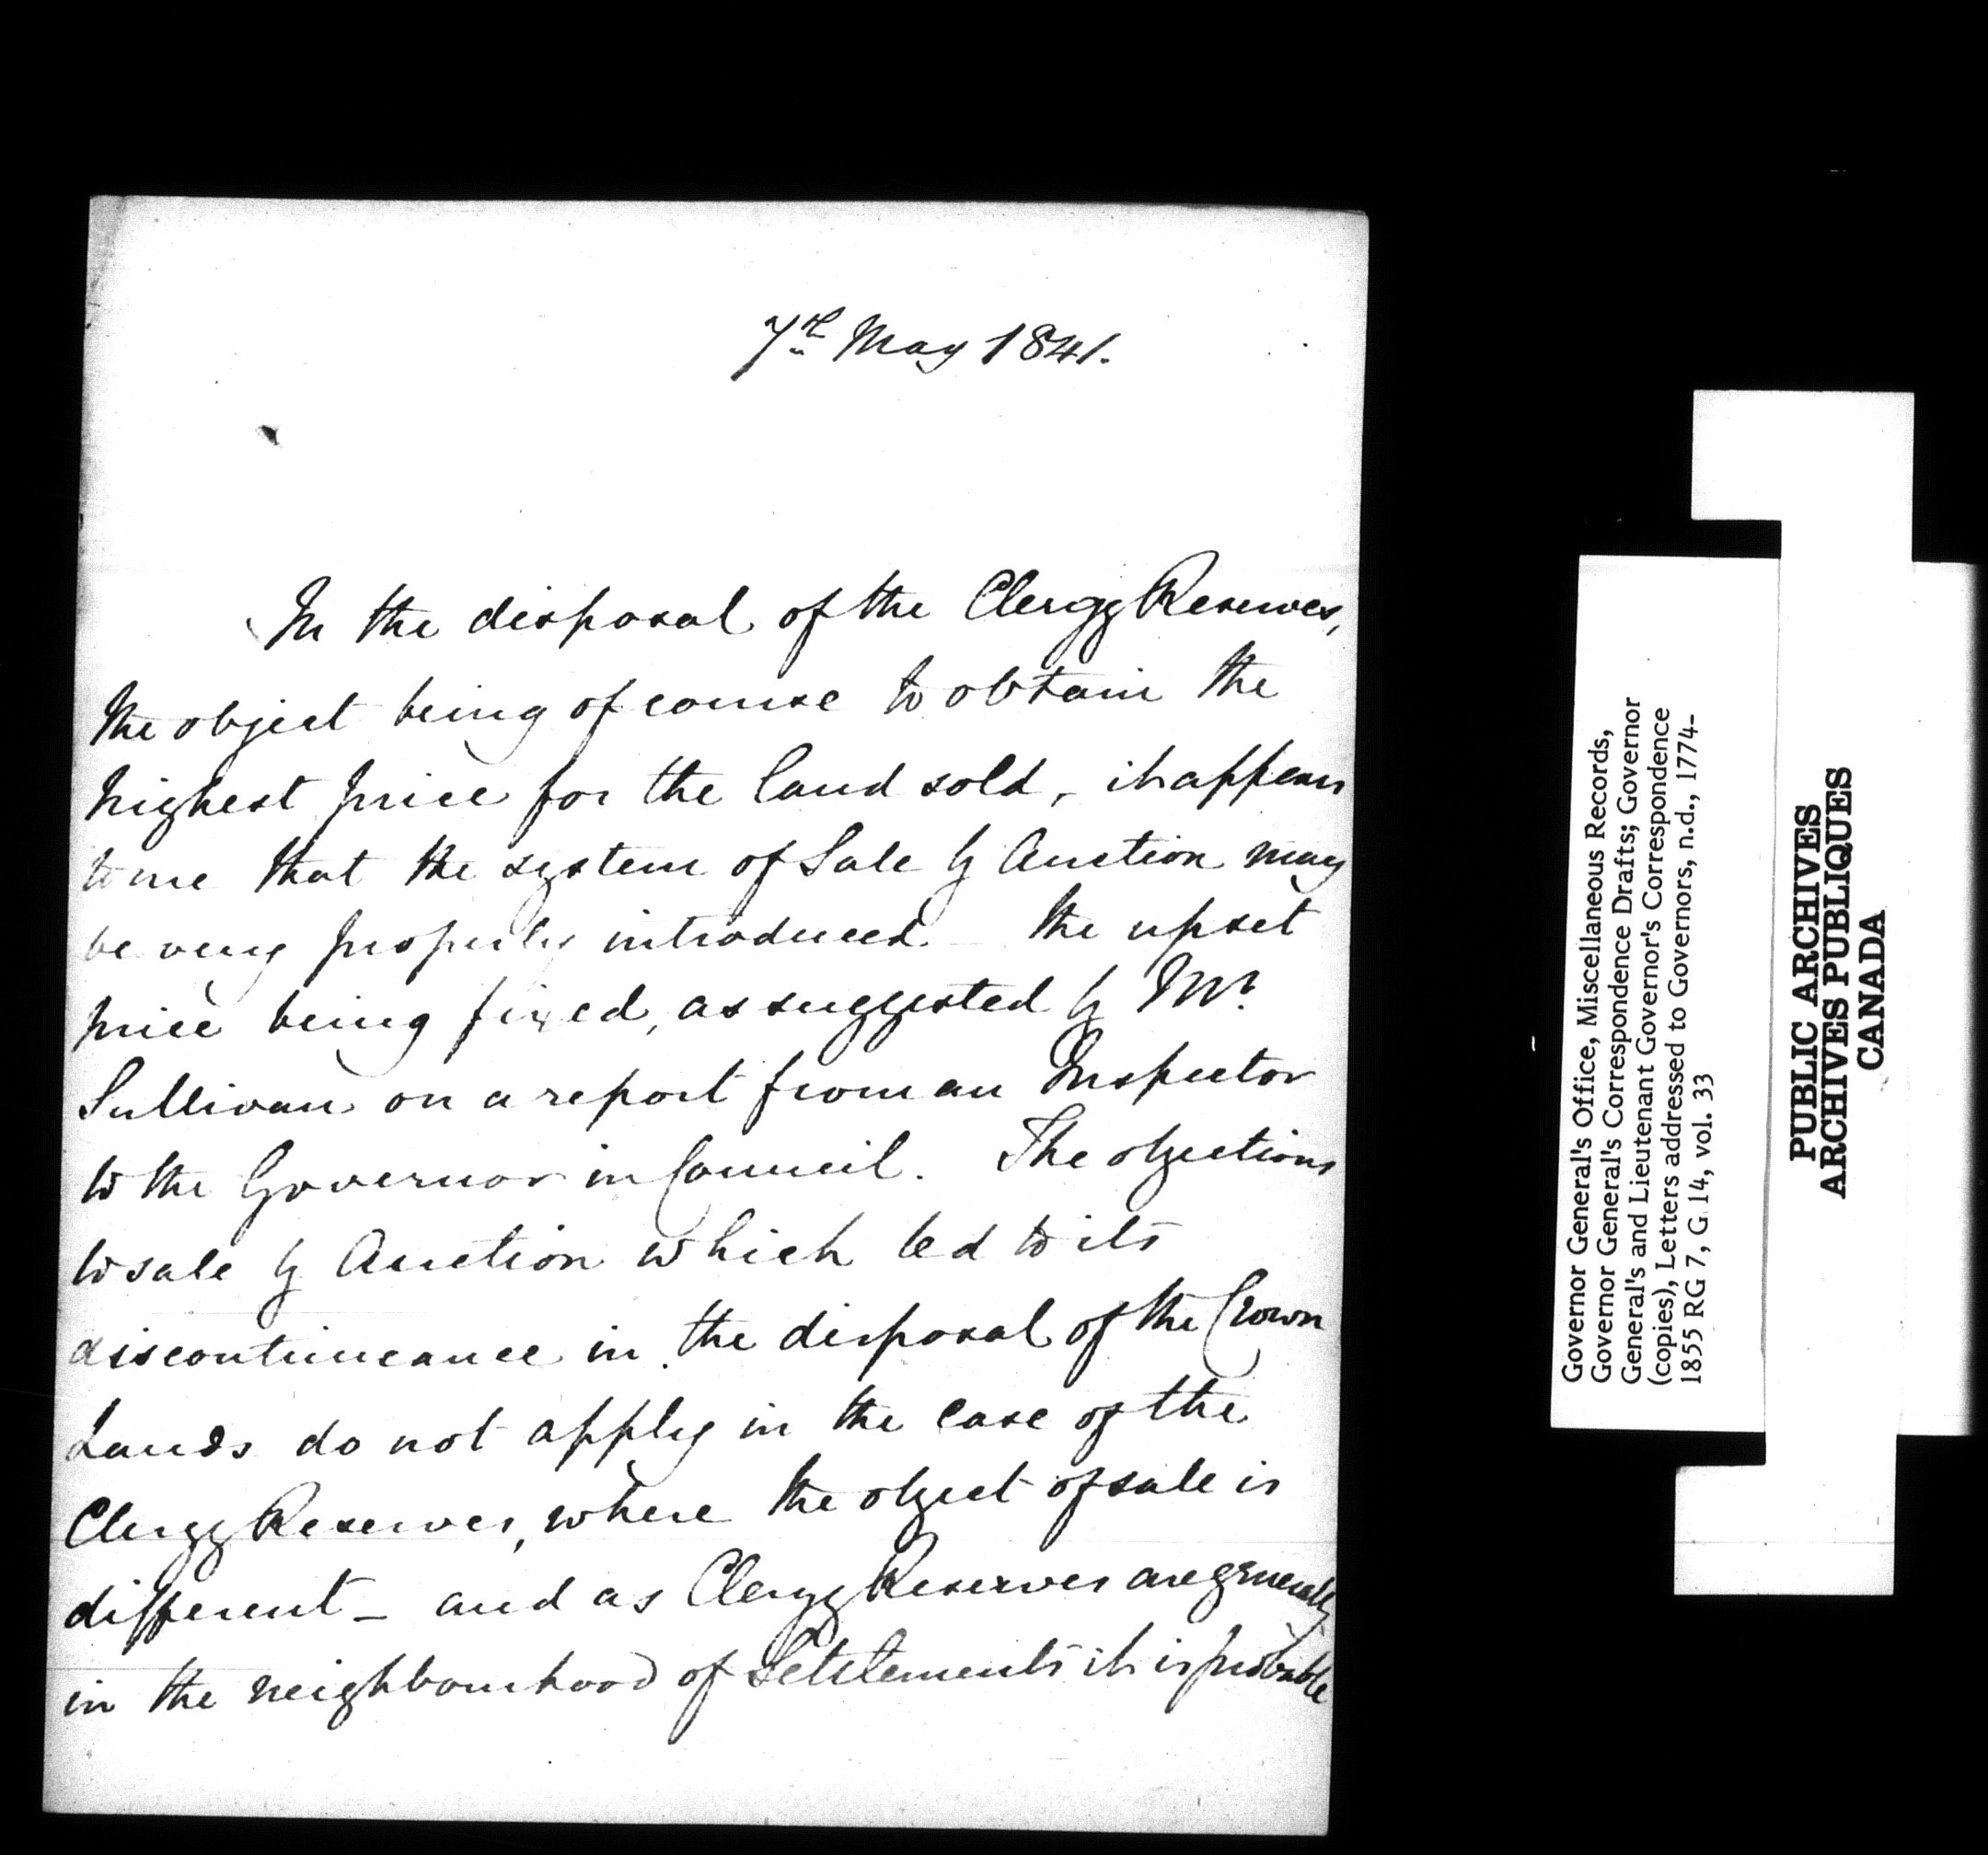 7th May 1841.
In the disposal of the Clergy Reserves,
the object being of course to obtain the
highest price for the land sold, it appears
to me that the system of Sale by Auction may
be very properly introduced – the upset
price being fixed, as suggested by Mr.
Sullivan on a report from an Inspector
to the Governor in Council. The objections
to sale by Auction which led to its
discontinuance in the disposal of the Crown
Lands do not apply in the case of the
Clergy Reserves, where the object of sale is
different – and as Clergy Reserves are generally
in the neighbourhood of Settlements it is probable
Governor General's Office, Miscellaneous Records,
Governor General's Correspondence Drafts; Governor
General's and Lieutenant Governor's Correspondence
(copies), Letters addressed to Governors, n.d., 1774-
1855 RG 7, G 14, vol. 33
PUBLIC ARCHIVES
ARCHIVES PUBLIQUES
CANADA